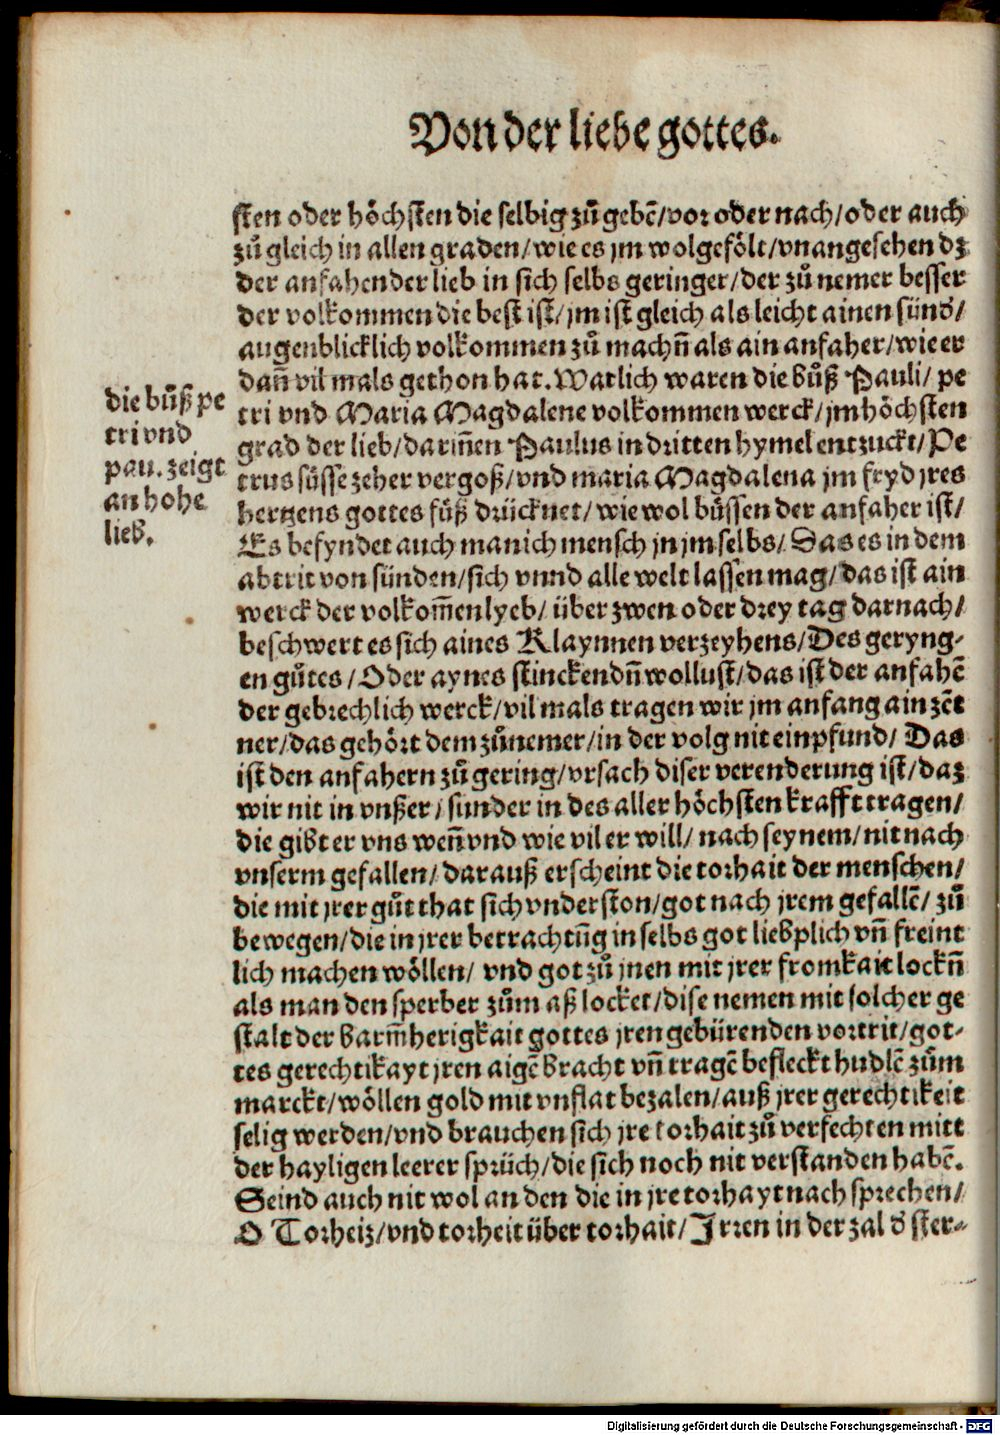 Von der liebe gottes.
sten oder höchsten die selbig zů gebē/vor oder nach/oder auch
zů gleich in allen graden/wie es jm wolgefölt/vnangesehen dz
der anfahender lieb in sich selbs geringer/der zů nemer besser
der volkommen die best ist/jm ist gleich als leicht ainen sünd'/
augenblicklich volkommen zů machn̄ als ain anfaher/wie er
dan̄ vil mals gethon hat. Warlich waren die bůß Pauli/pe
tri vnd Maria Magdalene volkommen werck/jm höchsten
grad der lieb/darin̄en Paulus in dritten hymel entzuckt/Pe
trus süsse zeher vergoß/vnd maria Magdalena jm fryd jres
hertzens gottes füß drücknet/wie wol büssen der anfaher ist/
Es befyndet auch manich mensch jn jm selbs/Das es in dem
abtrit von sünden/sich vnnd alle welt lassen mag/das ist ain
werck der volkom̄en lyeb/über zwen oder drey tag darnach/
beschwert es sich aines Klaynnen verzeyhens/Des geryng-
en gůtes/Oder aynes stinckendn̄ wollust/das ist der anfahē
der gebrechlich werck/vil mals tragen wir jm anfang ain zēt
ner/das gehört dem zůnemer/in der volg nit ein pfund/Das
ist den anfahern zů gering/vrsach diser verenderung ist/daz
wir nit in vnßer/sunder in des aller höchsten krafft tragen/
die gibt er vns wen̄ vnd wie vil er will/nach seynem/nit nach
vnserm gefallen/darauß erscheint die torhait der menschen/
die mit jrer gůt that sich vnderston/got nach jrem gefallē/zů
bewegen/die in jrer betrachtūg in selbs got lieblich vn̄ freint
lich machen wöllen/vnd got zů jnen mit jrer fromkait lockn̄
als man den sperber zům aß locket/dise nemen mit solcher ge
stalt der barm̄herigkait gottes jren gebürenden vortrit/got-
tes gerechtikayt jren aigē bracht vn̄ tragē befleckt hudlē zům
marckt/wöllen gold mit vnflat bezalen/auß jrer gerechtikeit
selig werden/vnd brauchen sich jre torhait zů verfechten mitt
der hayligen leerer sprüch/die sich noch nit verstanden habē.
Seind auch nit wol an den die in jre torhayt nach sprechen/
O Torheiz/vnd torheit über torhait/Irren in der zal d' ster-
die bůß pe
tri vnd
pau. zeigt
an hohe
lieb.
Digitalisierung gefördert durch die Deutsche Forschungsgemeinschaft - DFG